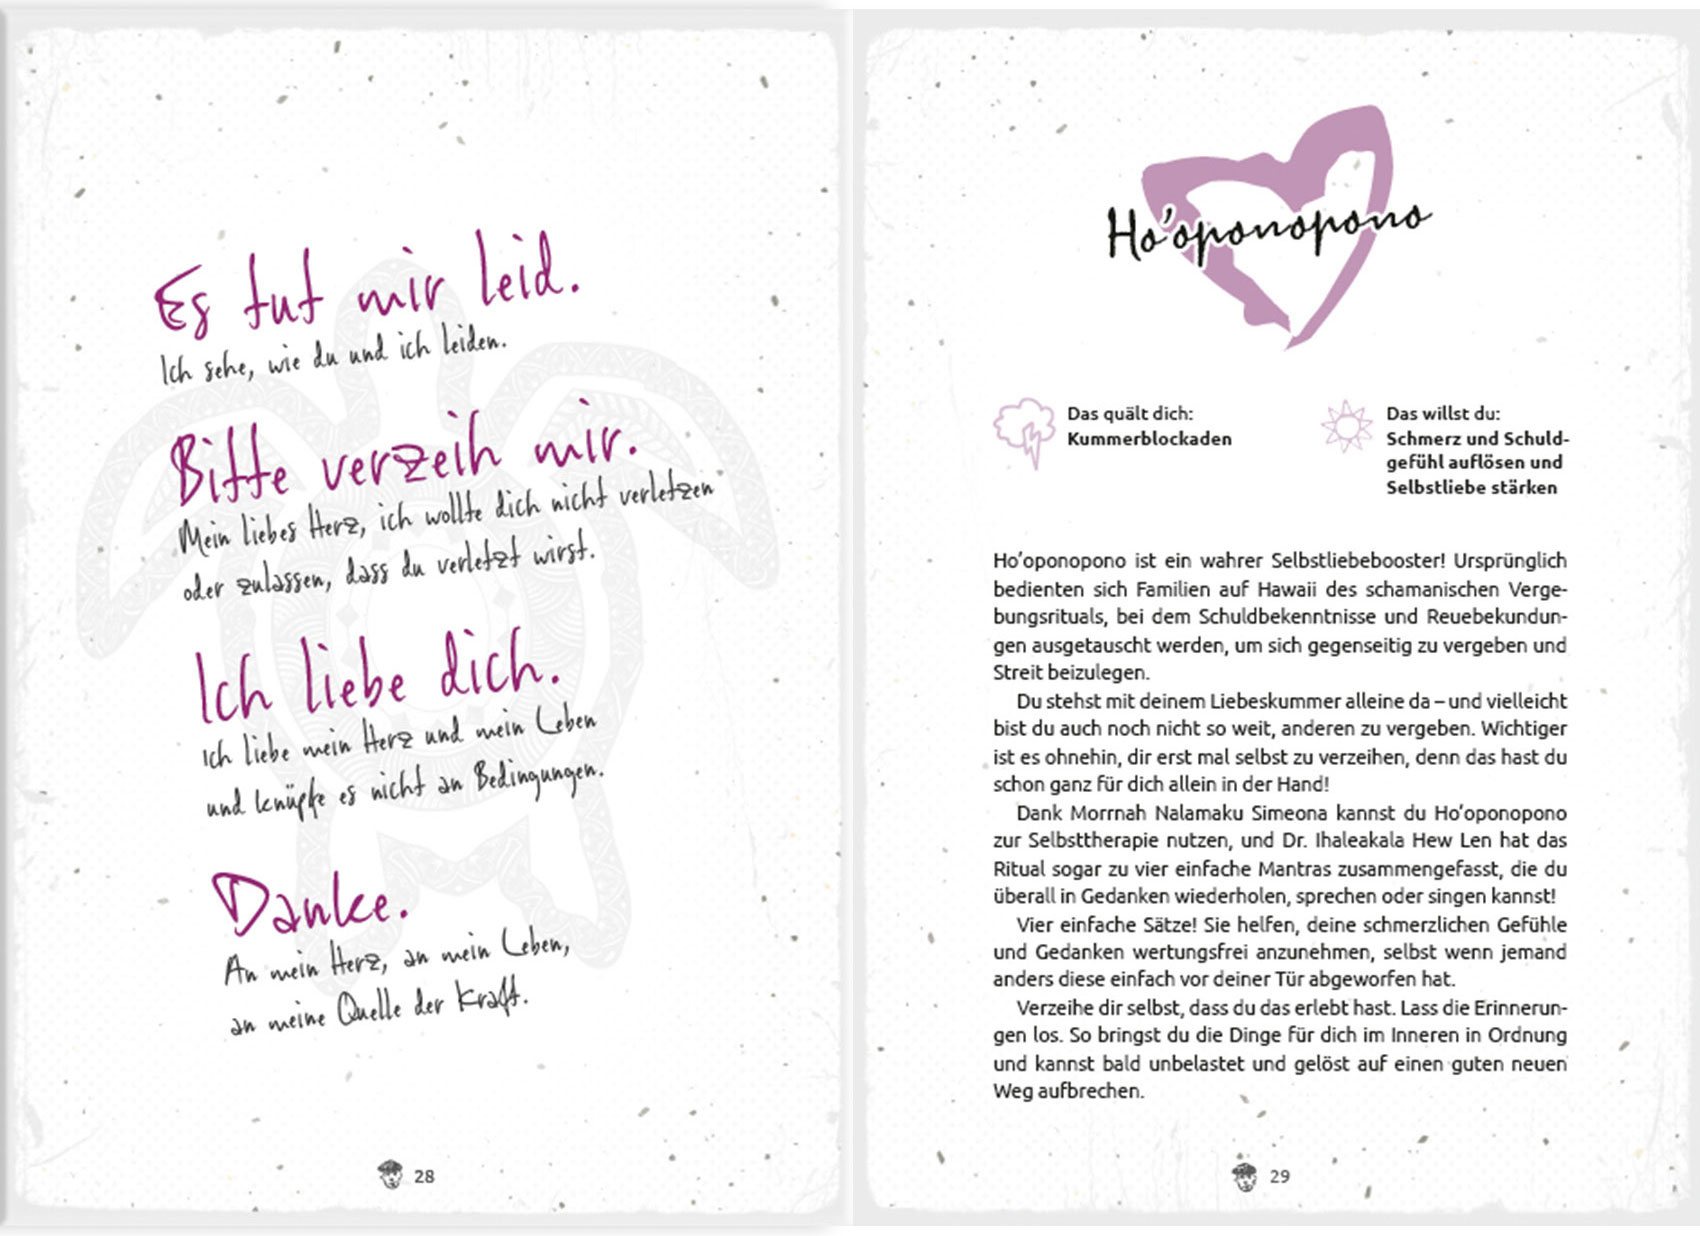 Es tut mir leid.
Ich sehe, wie du und ich leiden.
Bitte verzeih mir.
Mein liebes Herz, ich wollte dich nicht verletzen
oder zulassen, dass du verletzt wirst.
Ich liebe dich.
Ich liebe mein Herz und mein Leben
und knüpfe es nicht an Bedingungen.
Danke.
An mein Herz, an mein Leben,
an meine Quelle der Kraft.
28
Ho'oponopono
Das quält dich:
Kummerblockaden
Das willst du:
Schmerz und Schuld-
gefühl auflösen und
Selbstliebe stärken
Ho'oponopono ist ein wahrer Selbstliebebooster! Ursprünglich
bedienten sich Familien auf Hawaii des schamanischen Verge-
bungsrituals, bei dem Schuldbekenntnisse und Reuebekundun-
gen ausgetauscht werden, um sich gegenseitig zu vergeben und
Streit beizulegen.
Du stehst mit deinem Liebeskummer alleine da – und vielleicht
bist du auch noch nicht so weit, anderen zu vergeben. Wichtiger
ist es ohnehin, dir erst mal selbst zu verzeihen, denn das hast du
schon ganz für dich allein in der Hand!
Dank Morrnah Nalamaku Simeona kannst du Ho'oponopono
zur Selbsttherapie nutzen, und Dr. Ihaleakala Hew Len hat das
Ritual sogar zu vier einfache Mantras zusammengefasst, die du
überall in Gedanken wiederholen, sprechen oder singen kannst!
Vier einfache Sätze! Sie helfen, deine schmerzlichen Gefühle
und Gedanken wertungsfrei anzunehmen, selbst wenn jemand
anders diese einfach vor deiner Tür abgeworfen hat.
Verzeihe dir selbst, dass du das erlebt hast. Lass die Erinnerun-
gen los. So bringst du die Dinge für dich im Inneren in Ordnung
und kannst bald unbelastet und gelöst auf einen guten neuen
Weg aufbrechen.
29